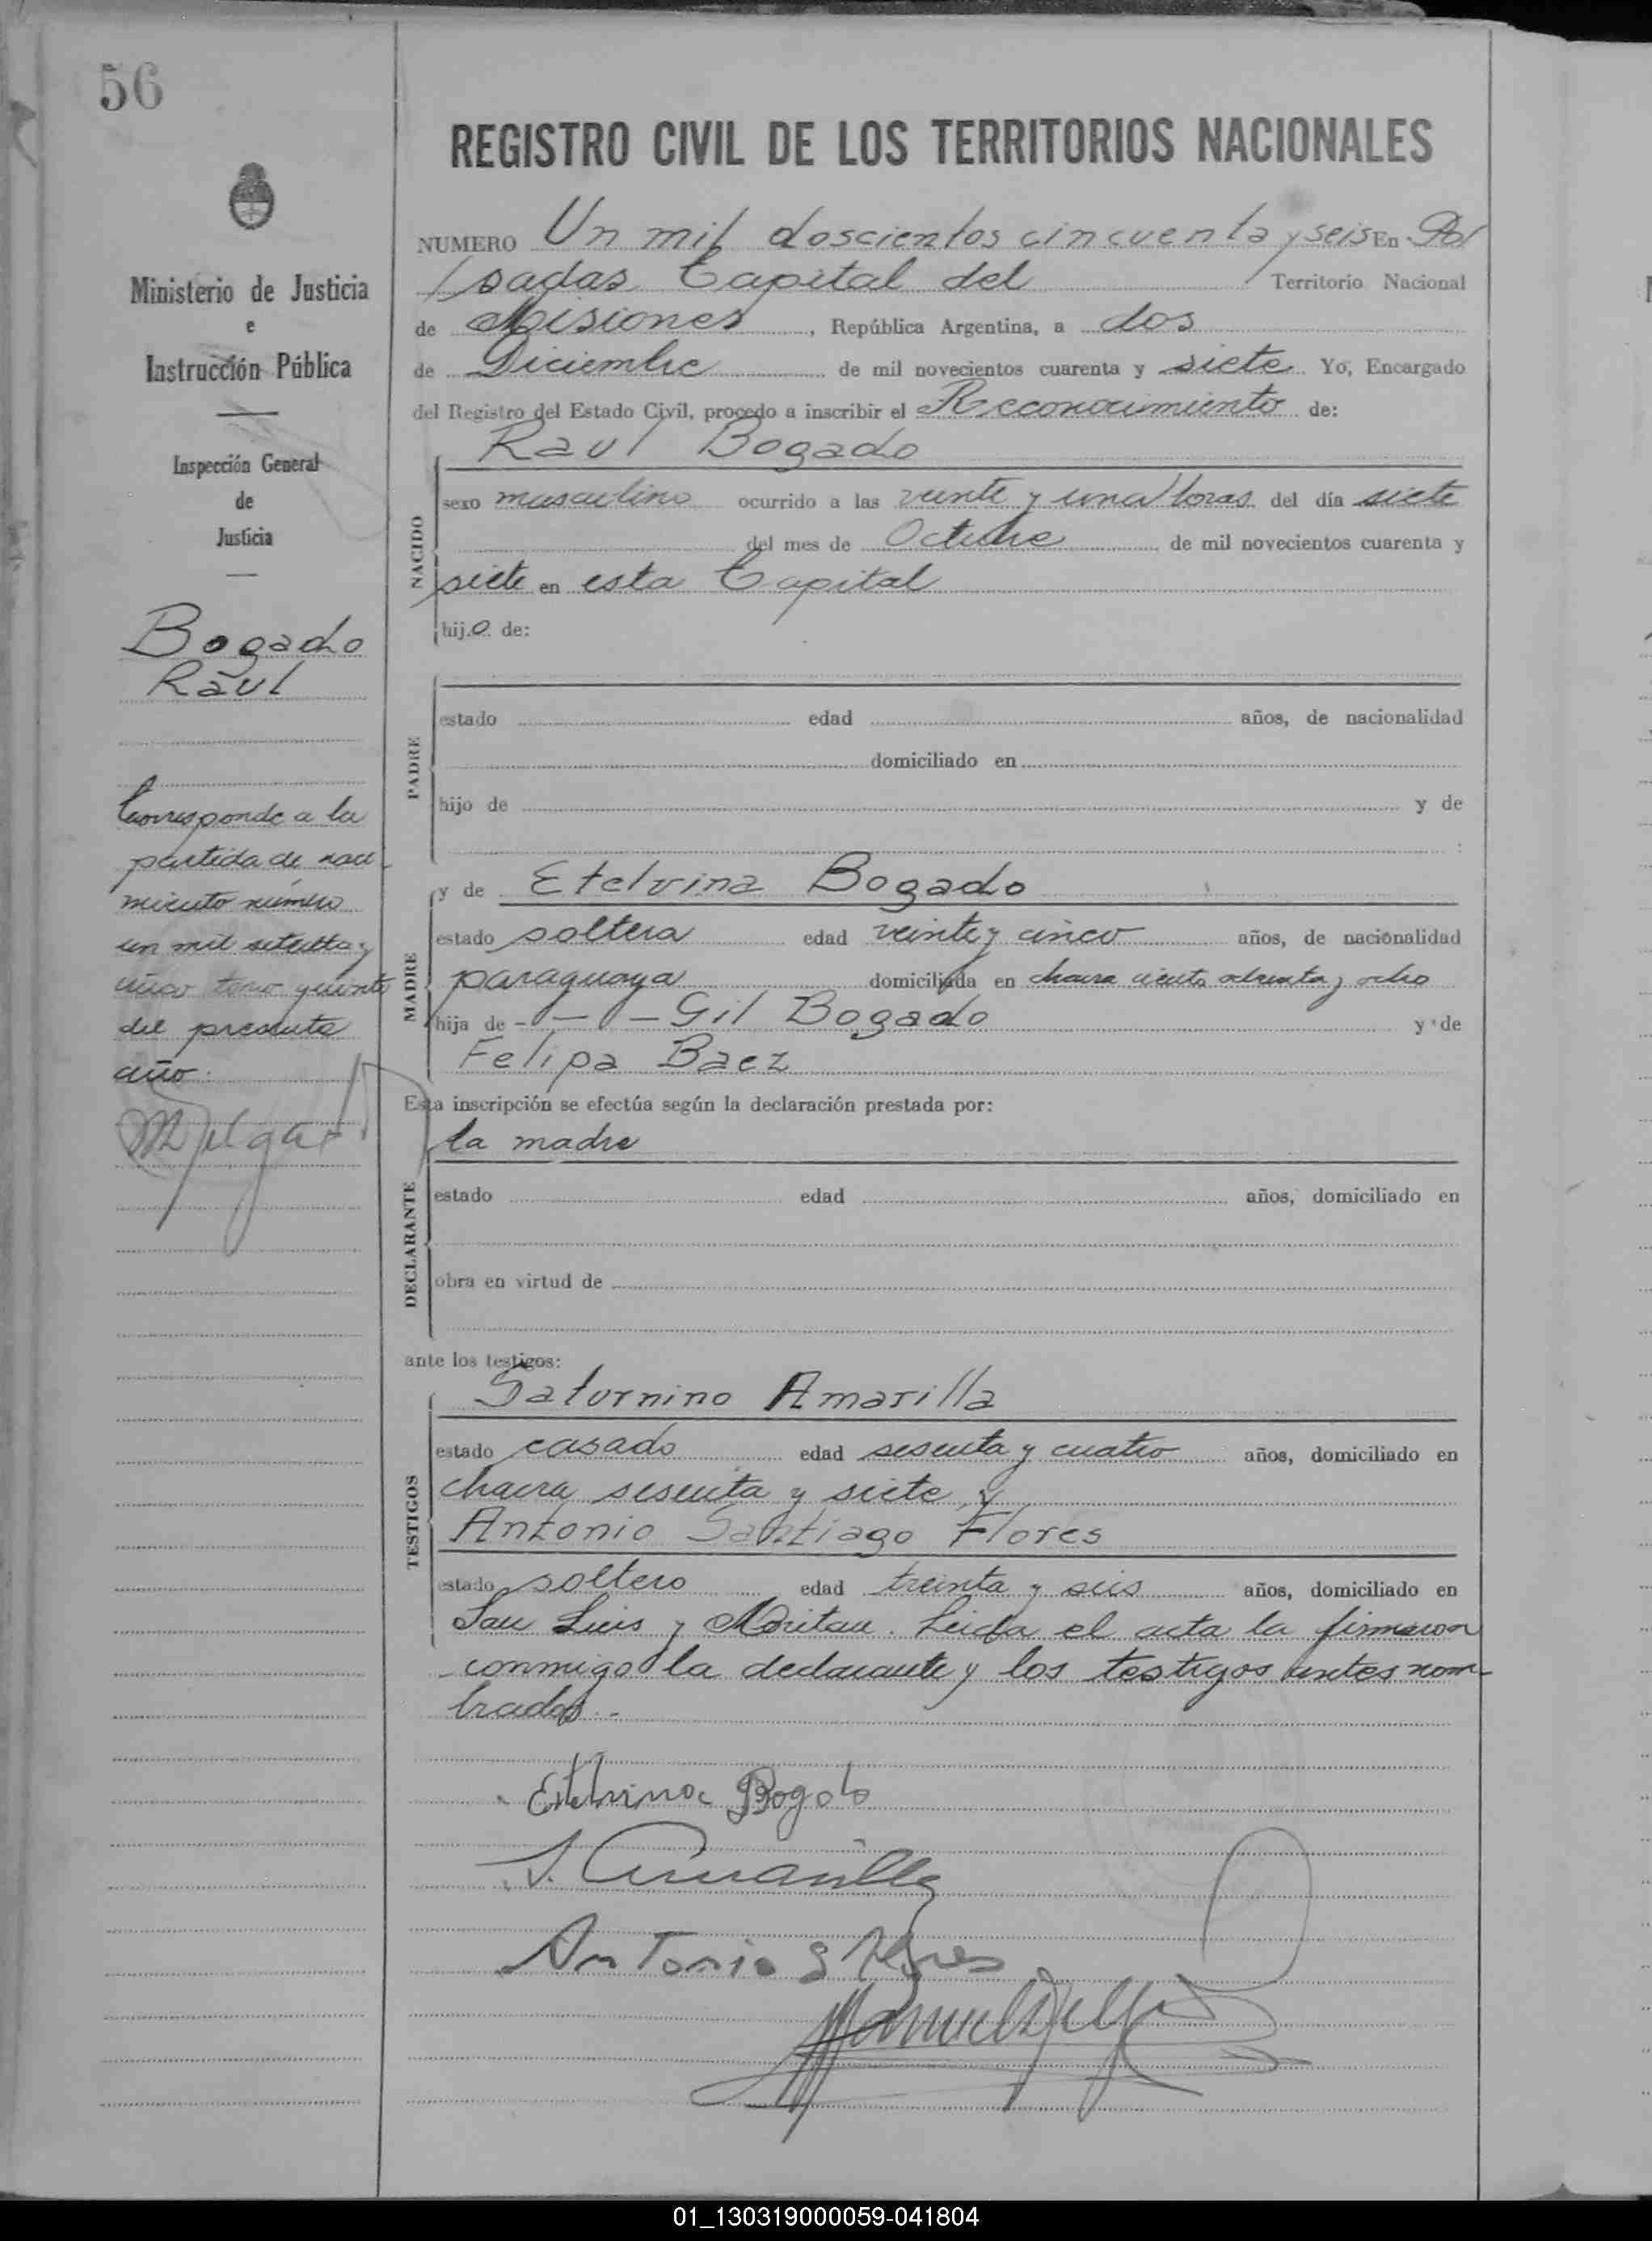 56
Ministerio de Justicia
e
Instrucción Pública
Inspección General
de
Justicia
Bogado
Raúl
Corresponde a la
partida de naci-
miento número
un mil setenta y
cinco tomo quinto
del presente
año.
REGISTRO CIVIL DE LOS TERRITORIOS NACIONALES
NUMERO Un mil doscientos cincuenta y seis En Po/
/sadas Capital del Territorio Nacional
de Misiones, República Argentina, a dos
de Diciembre de mil novecientos cuarenta y siete Yo, Encargado
del Registro del Estado Civil, procedo a inscribir el Reconocimiento de:
Raul Bogado
NACIDO
sexo masculino ocurrido a las veinte y una horas del día siete
del mes de Octubre de mil novecientos cuarenta y
siete en esta Capital
hij.o de:
PADRE
estado edad años, de nacionalidad
domiciliado en
hijo de y de
:
MADRE
y de Etelvina Bogado
estado soltera edad veinte y cinco años, de nacionalidad
paraguaya domiciliada en chacra ciento ochenta y ocho
hija de Gil Bogado y de
Felipa Baez
Esta inscripción se efectúa según la declaración prestada por:
la madre
DECLARANTE
estado edad años, domiciliado en
obra en virtud de
ante los testigos:
TESTIGOS
Saturnino Amarilla
estado casado edad sesenta y cuatro años, domiciliado en
chacra sesenta y siete y
Antonio Santiago Flores
estado soltero edad treinta y seis años, domiciliado en
San Luis y . Leida el acta la firmaron
conmigo la declarante y los testigos antes nom-
brados.-
Etelvina Bogado
S. Amarilla
Antonio S Flores
01_130319000059-041804